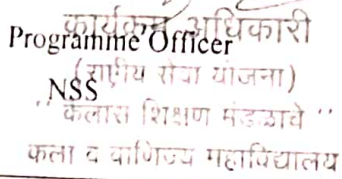 कार्यक्रम अधिकारी
Programme Officer
(राष्ट्रीय सेवा योजना)
NSS
" कैलास शिक्षण मंडळाचे "
कला व वाणिज्य महाविद्यालय